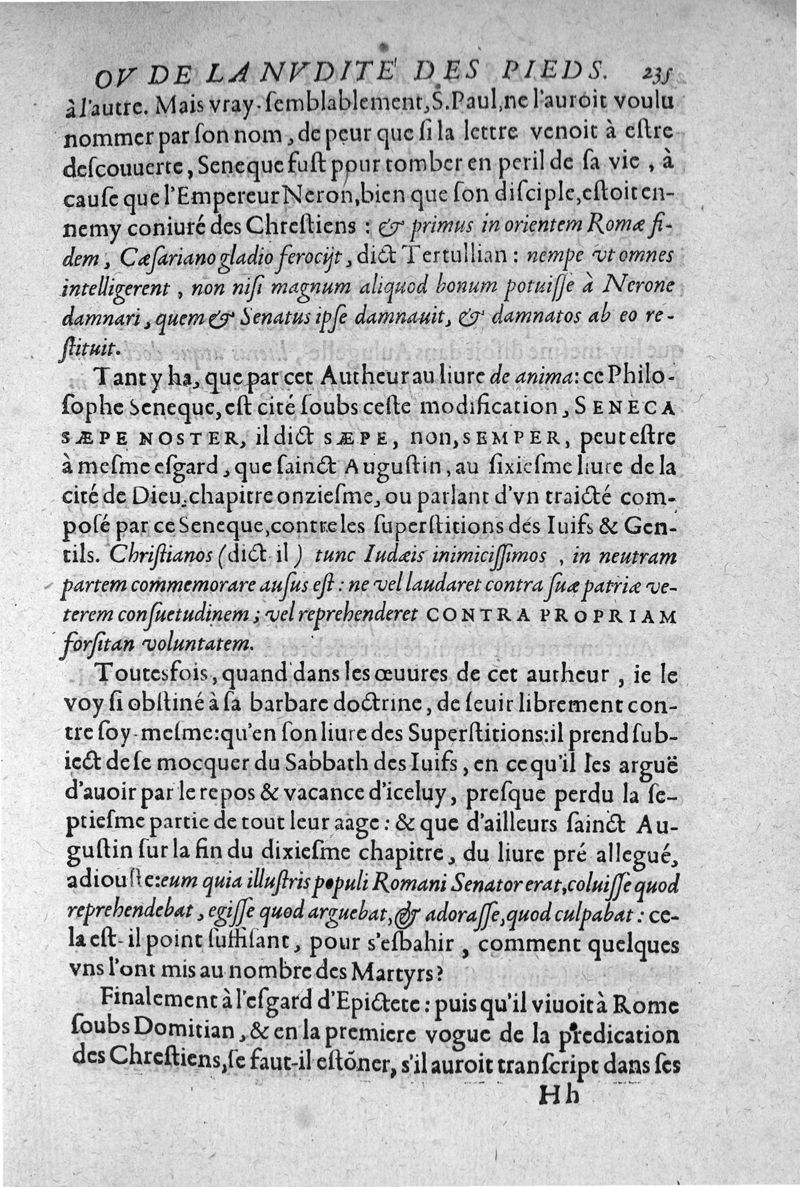 OV DE LA NVDITE' DES PIEDS. 235
à l'autre. Mais vray-ſemblablement, S. Paul, ne l'auroit voulu
nommer par ſon nom, de peur que ſi la lettre venoit à eſtre
deſcouuerte, Seneque fuſt pour tomber en peril de ſa vie, à
cauſe que l'Empereur Neron, bien que ſon diſciple, eſtoit en-
nemy coniuré des Chreſtiens : & primus in orientem Romæ fi-
dem, Cæſariano gladio ferocijt, dict Tertullian : nempe vt omnes
intelligerent, non niſi magnum aliquod bonum potuiſſe à Nerone
damnari, quem & Senatus ipſe damnauit, & damnatos ab eo re-
ſtituit.
Tant y ha, que par cet Autheur au liure de anima: ce Philo-
ſophe Seneque, eſt cité ſoubs ceſte modification, SENECA
SÆPE NOSTER, il dict SÆPE, non, SEMPER, peut eſtre
à meſme eſgard, que ſainct Auguſtin, au ſixieſme liure de la
cité de Dieu. chapitre onzieſme, ou parlant d'vn traicté com-
poſé par ce Seneque, contre les ſuperſtitions des Iuifs & Gen-
tils. Chriſtianos (dict il) tunc Iudæis inimiciſſimos, in neutram
partem commemorare auſus eſt : ne vel laudaret contra ſuæ patriæ ve-
terem conſuetudinem ; vel reprehenderet CONTRA PROPRIAM
forſitan voluntatem.
Toutesfois, quand dans les œuures de cet autheur, ie le
voy ſi obſtiné à ſa barbare doctrine, de ſeuir librement con-
tre ſoy-meſme: qu'en ſon liure des Superſtitions: il prend ſub-
iect de ſe mocquer du Sabbath des Iuifs, en ce qu'il les arguë
d'auoir par le repos & vacance d'iceluy, preſque perdu la ſe-
ptieſme partie de tout leur aage : & que d'ailleurs ſainct Au-
guſtin ſur la fin du dixieſme chapitre, du liure pré allegué,
adiouſte: eum quia illuſtris populi Romani Senator erat, coluiſſe quod
reprehendebat, egiſſe quod arguebat, & adoraſſe, quod culpabat : ce-
la eſt-il point ſuffiſant, pour s'eſbahir, comment quelques
vns l'ont mis au nombre des Martyrs?
Finalement à l'eſgard d'Epictete : puis qu'il viuoit à Rome
ſoubs Domitian, & en la premiere vogue de la predication
des Chreſtiens, ſe faut-il eſtõner, s'il auroit tranſcript dans ſes
Hh